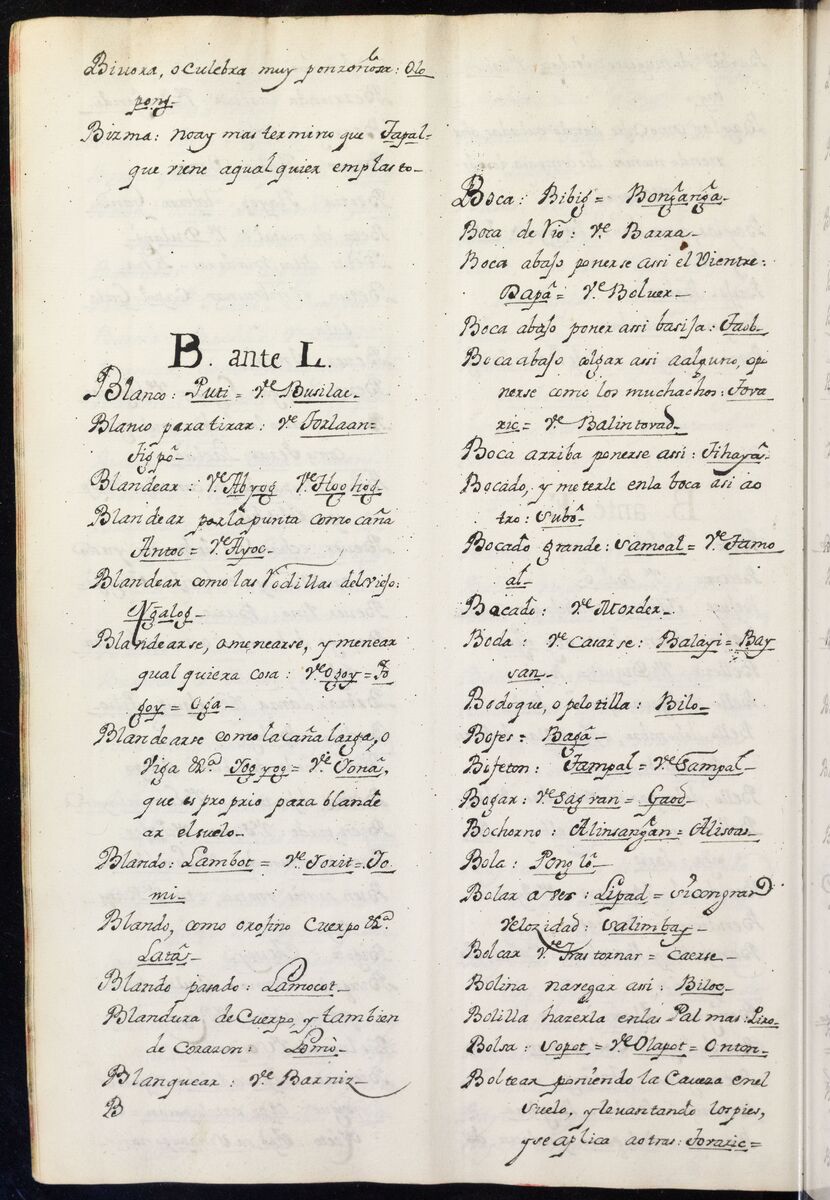 Bivora, o culebra muy ponzoñosa: Olo
pong-
Bizma: no ay mas termino que Tapal=
que viene a qual quier emplasto-
B. ante L.
Blanco: Puti= Ve Busilac-
Blanco para tirar: Ve Torlaan=
Tigpô-
Blandear: Ve Abyog Ve Hoohog-
Blandear por la punta como caña
Antoc= Ve Ayoc-
Blandear como las Rodillas del viejo:
Ngalog-
Blandearse, o menearse, y menear
qual quiera cosa: Ve Ogoy= To
goy= Oga-
Blandearse como la caña larga, o
Viga &a. Yogyog= Ve Tonâ,
que es proprio para blande
ar el suelo-
Blando: Lambot= Ve Torit= To
mi-
Blando, como orofino Cuerpo &a.
Latâ-
Blando pasado: Lamocot-
Blandura de Cuerpo, y tambien
de corazon: Lomò-
Blanquear: Ve Barniz-
B
Boca: Bibig= Bonganga-
Boca de Rio: Ve Barra-
Boca abajo ponerse assi el Vientre:
Dapâ= Ve Bolver-
Boca abajo poner assi basija: Taob-
Boca abajo colgar assi a alguno, o po
nerse como los muchachos: Tova
ric= Ve Balintovad-
Boca arriba ponerse assi: Tihayâ-
Bocado, y meterle en la boca asi ao
tro: Subô-
Bocado grande: Samoal= Ve Tamo
al-
Bocado: Ve Morder-
Boda: Ve Casarse: Balayi= Bay
san-
Bodoque, o pelotilla: Bilo-
Bofes= Bagâ-
Bofeton: Tampal= Ve Sampal-
Bogar: Ve Sagvan= Gaod-
Bochorno: Alinsangan= Alisoas
Bola: Ponglô-
Bolar aves: Lipad= Si con gran
Velozidad: Salimbay-
Bolcar Ve Tras tornar= Caerse-
Bolina navegar asi: Biloc-
Bolilla hazerla en las Palmas: Liro-
Bolsa: Sopot= Ve Olapot= Onton-
Boltear poniendo la Caveza en el
suelo, y levantando los pies,
y se aplica ao tras: Tovaric=